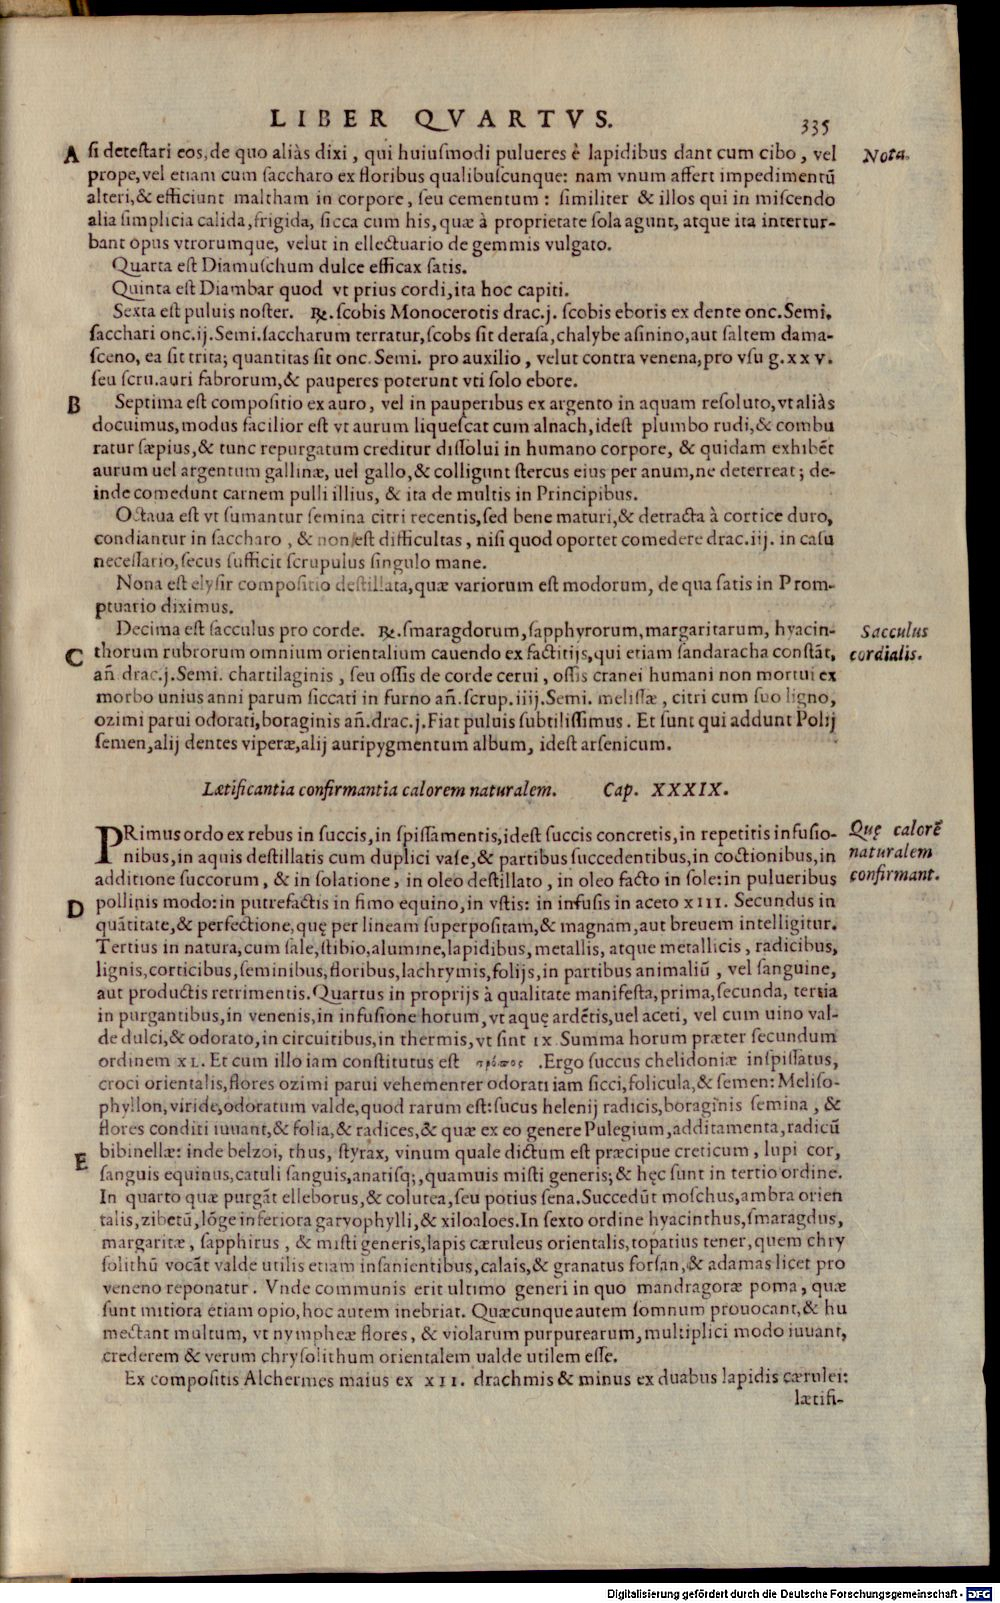 LIBER QVARTVS. 335
A si detestari eos, de quo aliàs dixi, qui huiusmodi pulueres è lapidibus dant cum cibo, vel Nota.
prope, vel etiam cum saccharo ex floribus qualibuscunque: nam vnum affert impedimentũ
alteri, & efficiunt maltham in corpore, seu cementum: similiter & illos qui in miscendo
alia simplicia calida, frigida, sicca cum his, quæ à proprietate sola agunt, atque ita intertur-
bant opus vtrorumque, velut in ellectuario de gemmis vulgato.
Quarta est Diamuschum dulce efficax satis.
Quinta est Diambar quod vt prius cordi, ita hoc capiti.
Sexta est puluis noster. ℞. scobis Monocerotis drac. j. scobis eboris ex dente onc. Semi.
sacchari onc. ij. Semi. saccharum terratur, scobs sit derasa, chalybe asinino, aut saltem dama-
sceno, ea sit trita; quantitas sit onc. Semi. pro auxilio, velut contra venena, pro vsu g. xxv.
seu scru. auri fabrorum, & pauperes poterunt vti solo ebore.
B Septima est compositio ex auro, vel in pauperibus ex argento in aquam resoluto, vt aliàs
docuimus, modus facilior est vt aurum liquescat cum alnach, idest plumbo rudi, & combu
ratur sæpius, & tunc repurgatum creditur dissolui in humano corpore, & quidam exhibẽt
aurum uel argentum gallinæ, uel gallo, & colligunt stercus eius per anum, ne deterreat; de-
inde comedunt carnem pulli illius, & ita de multis in Principibus.
Octaua est vt sumantur semina citri recentis, sed bene maturi, & detracta à cortice duro,
condiantur in saccharo, & non est difficultas, nisi quod oportet comedere drac. iij. in casu
necessario, secus sufficit scrupulus singulo mane.
Nona est elysir compositio destillata, quæ variorum est modorum, de qua satis in Prom-
ptuario diximus.
Decima est sacculus pro corde. ℞. smaragdorum, sapphyrorum, margaritarum, hyacin- Sacculus
C thorum rubrorum omnium orientalium cauendo ex factitijs, qui etiam sandaracha constãt, cordialis.
añ drac. j. Semi. chartilaginis, seu ossis de corde cerui, ossis cranei humani non mortui ex
morbo unius anni parum siccati in furno añ. scrup. iiij. Semi. melissæ, citri cum suo ligno,
ozimi parui odorati, boraginis añ. drac. j. Fiat puluis subtilissimus. Et sunt qui addunt Polij
semen, alij dentes viperæ, alij auripygmentum album, idest arsenicum.
Lætificantia confirmantia calorem naturalem. Cap. XXXIX.
PRimus ordo ex rebus in succis, in spissamentis, idest succis concretis, in repetitis infusio- Quę calorẽ
nibus, in aquis destillatis cum duplici vase, & partibus succedentibus, in coctionibus, in naturalem
additione succorum, & in solatione, in oleo destillato, in oleo facto in sole: in pulueribus confirmant.
D pollinis modo: in putrefactis in fimo equino, in vstis: in infusis in aceto XIII. Secundus in
quãtitate, & perfectione, quę per lineam superpositam, & magnam, aut breuem intelligitur.
Tertius in natura, cum sale, stibio, alumine, lapidibus, metallis, atque metallicis, radicibus,
lignis, corticibus, seminibus, floribus, lachrymis, folijs, in partibus animaliũ, vel sanguine,
aut productis retrimentis. Quartus in proprijs à qualitate manifesta, prima, secunda, tertia
in purgantibus, in venenis, in infusione horum, vt aquę ardẽtis, uel aceti, vel cum uino val-
de dulci, & odorato, in circuitibus, in thermis, vt sint IX Summa horum præter secundum
ordinem XL. Et cum illo iam constitutus est . Ergo succus chelidoniæ inspissatus,
croci orientalis, flores ozimi parui vehementer odorati iam sicci, folicula, & semen: Meliso-
phyllon, viride, odoratum valde, quod rarum est: sucus helenij radicis, boraginis semina, &
flores conditi iuuant, & folia, & radices, & quæ ex eo genere Pulegium, additamenta, radicũ
E bibinellæ: inde belzoi, thus, styrax, vinum quale dictum est præcipue creticum, lupi cor,
sanguis equinus, catuli sanguis, anatisq;, quamuis misti generis; & hęc sunt in tertio ordine.
In quarto quæ purgãt elleborus, & colutea, seu potius sena. Succedũt moschus, ambra orien
talis, zibetũ, lõge inferiora garyophylli, & xiloaloes. In sexto ordine hyacinthus, smaragdus,
margaritæ, sapphirus, & misti generis, lapis cæruleus orientalis, topatius tener, quem chry
solithũ vocãt valde utilis etiam insanientibus, calais, & granatus forsan, & adamas licet pro
veneno reponatur. Vnde communis erit ultimo generi in quo mandragoræ poma, quæ
sunt mitiora etiam opio, hoc autem inebriat. Quæcunque autem somnum prouocant, & hu
mectant multum, vt nympheæ flores, & violarum purpurearum, multiplici modo iuuant,
crederem & verum chrysolithum orientalem ualde utilem esse.
Ex compositis Alchermes maius ex XII. drachmis & minus ex duabus lapidis cærulei:
lætifi-
Digitalisierung gefördert durch die Deutsche Forschungsgemeinschaft - DFG